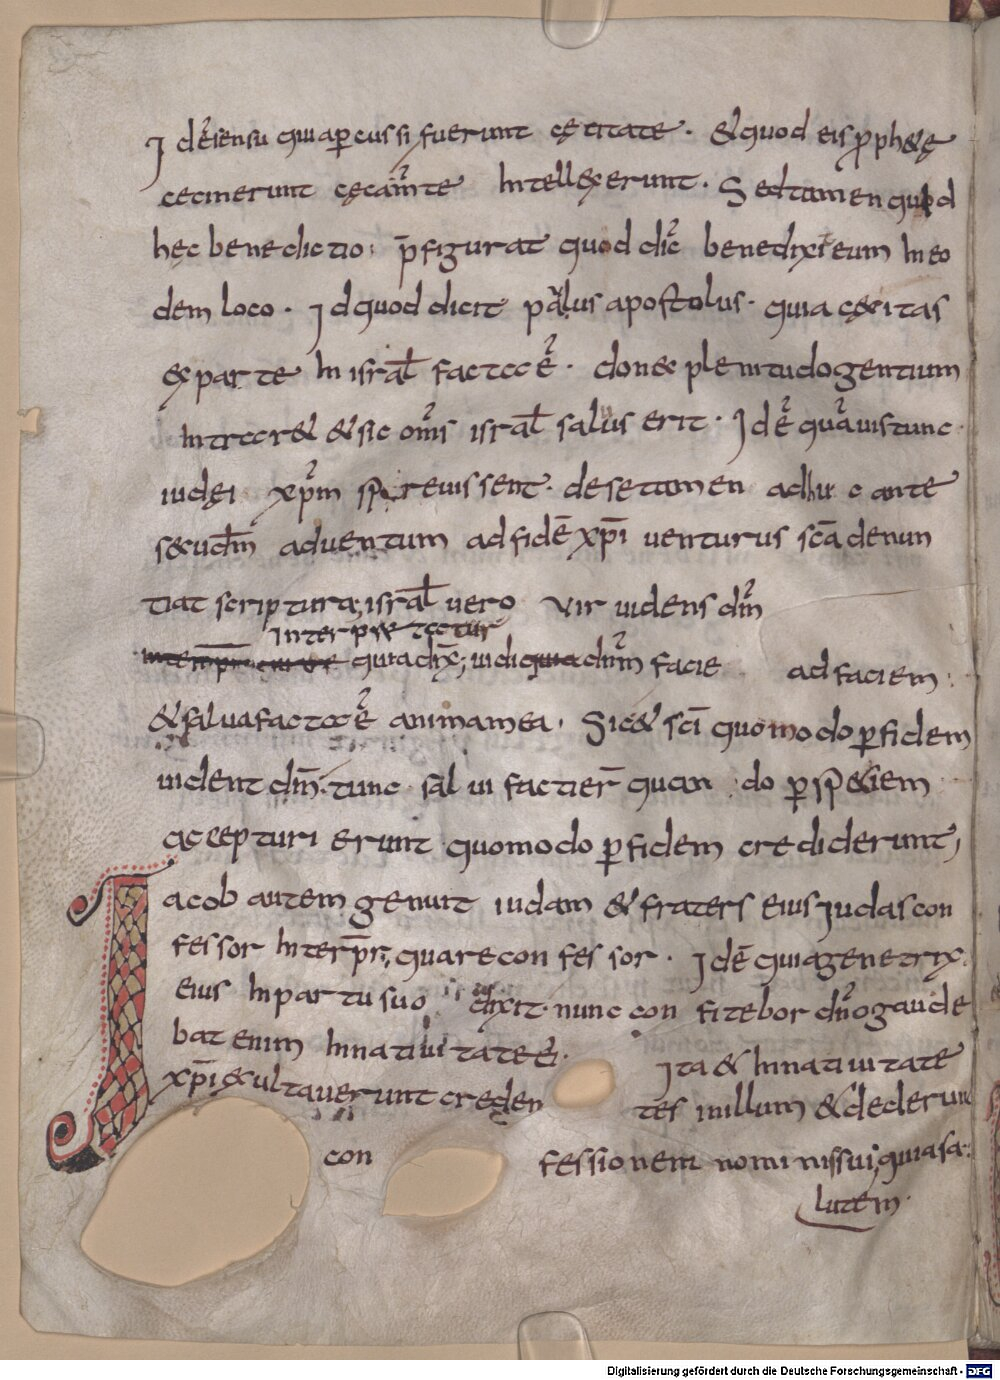 Id ÷ iensu quia percussi fuerunt cęcitate. &quod eis p̱ph&ę
cecinerunt cęcam̄te Intellexerunt. Sedtamen quod
hęc benedictio p̄figurat quod dic̄ benedixi eum Ineo
dem loco. Idquoddicit paulus apostolus. quia cęcitas
exparte In isrāl facta ē. donec plenitudogentium
Intrar& &sic om̄s isrāl saluus erit. Id ē quāuistunc
iudęi xp̄m spreuissent. desetamen adhuc ante
secud̄m aduentum adfidē xp̄i venturus scā denun
tiat scriptura; isrāl vero vir uidens dm̄
Interpretatur
quiadix̄; uidi dn̄m facie adfaciem
&saluafacta ē animamea. Sic& sc̄i quomodo ꝑfidem
uident dm̄. tunc saluifactier̄ quando ꝑspeciem
accepturi erunt quomodo ꝑfidem crediderunt,
Iacob autem genuit iudam &fraters eius Iudas con
fessor Interp̄r, quare confessor. Idē quiagenetrix
eius Inpartusuo dixit. nunc confitebor dn̄o gaude
bat enim Innatiuitate ei. Ita & Innatiuitate
xp̄i exultauerunt creden tes inillum &dederun
con fessionem nominissui, quiasa
lutem.
Digitalisierung gefördert durch die Deutsche Forschungsgemeinschaft - DFG